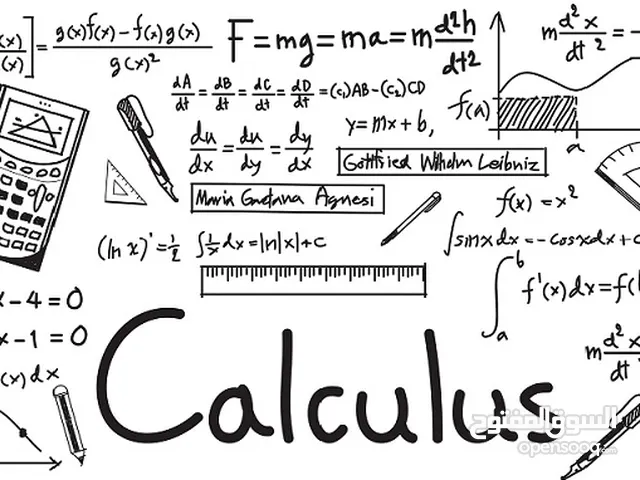 (x)/(x)] = g(x)f(x) − f(x)g(x) / g(x)²
F = mg = ma = m d²h/dt²
m d²x/dt² = −
dA/dt = dB/dt = dC/dt = dD/dt = (c₁)AB − (c₂)CD
f(a)
y = mx + b,
du/dx = du/dy = dy/dx
a
Gottfried Wilhelm Leibniz
Maria Gaetana Agnesi
f(x) = x²
(ln x)' = 1/2
∫ 1/x dx = |n|x| + c
∫ sinx dx = − cosx dx + c
∫ₐᵇ f'(x) dx = f(
x − 4 = 0
x − 1 = 0
(x) dx
m d²x/dt²
Calculus
السوق المفتوح
opensooq.com